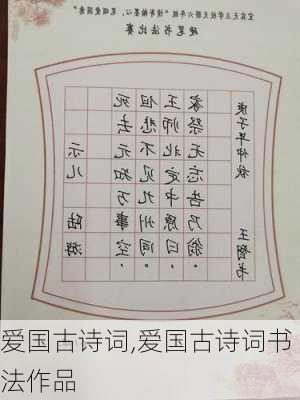 硬笔书法比赛
示儿 陆游
死去元知万事空.
但悲不见九州同.
王师北定中原日.
家祭无忘告乃翁.
庚子年仲秋 王智书
爱国古诗词,爱国古诗词书
法作品